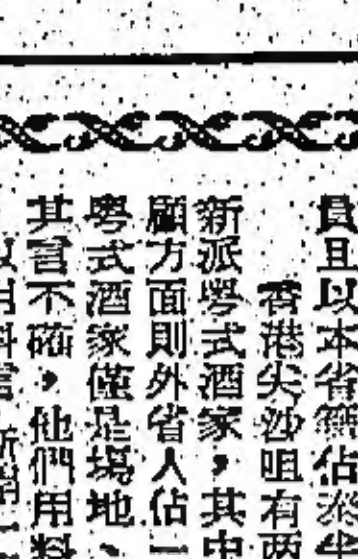 員且以本省籍佔
香港尖沙咀有兩
新派粵式酒家，其中
顧方面則外省人佔一
粵式酒家僅是場地、
其言不確，他們用料
以用料言